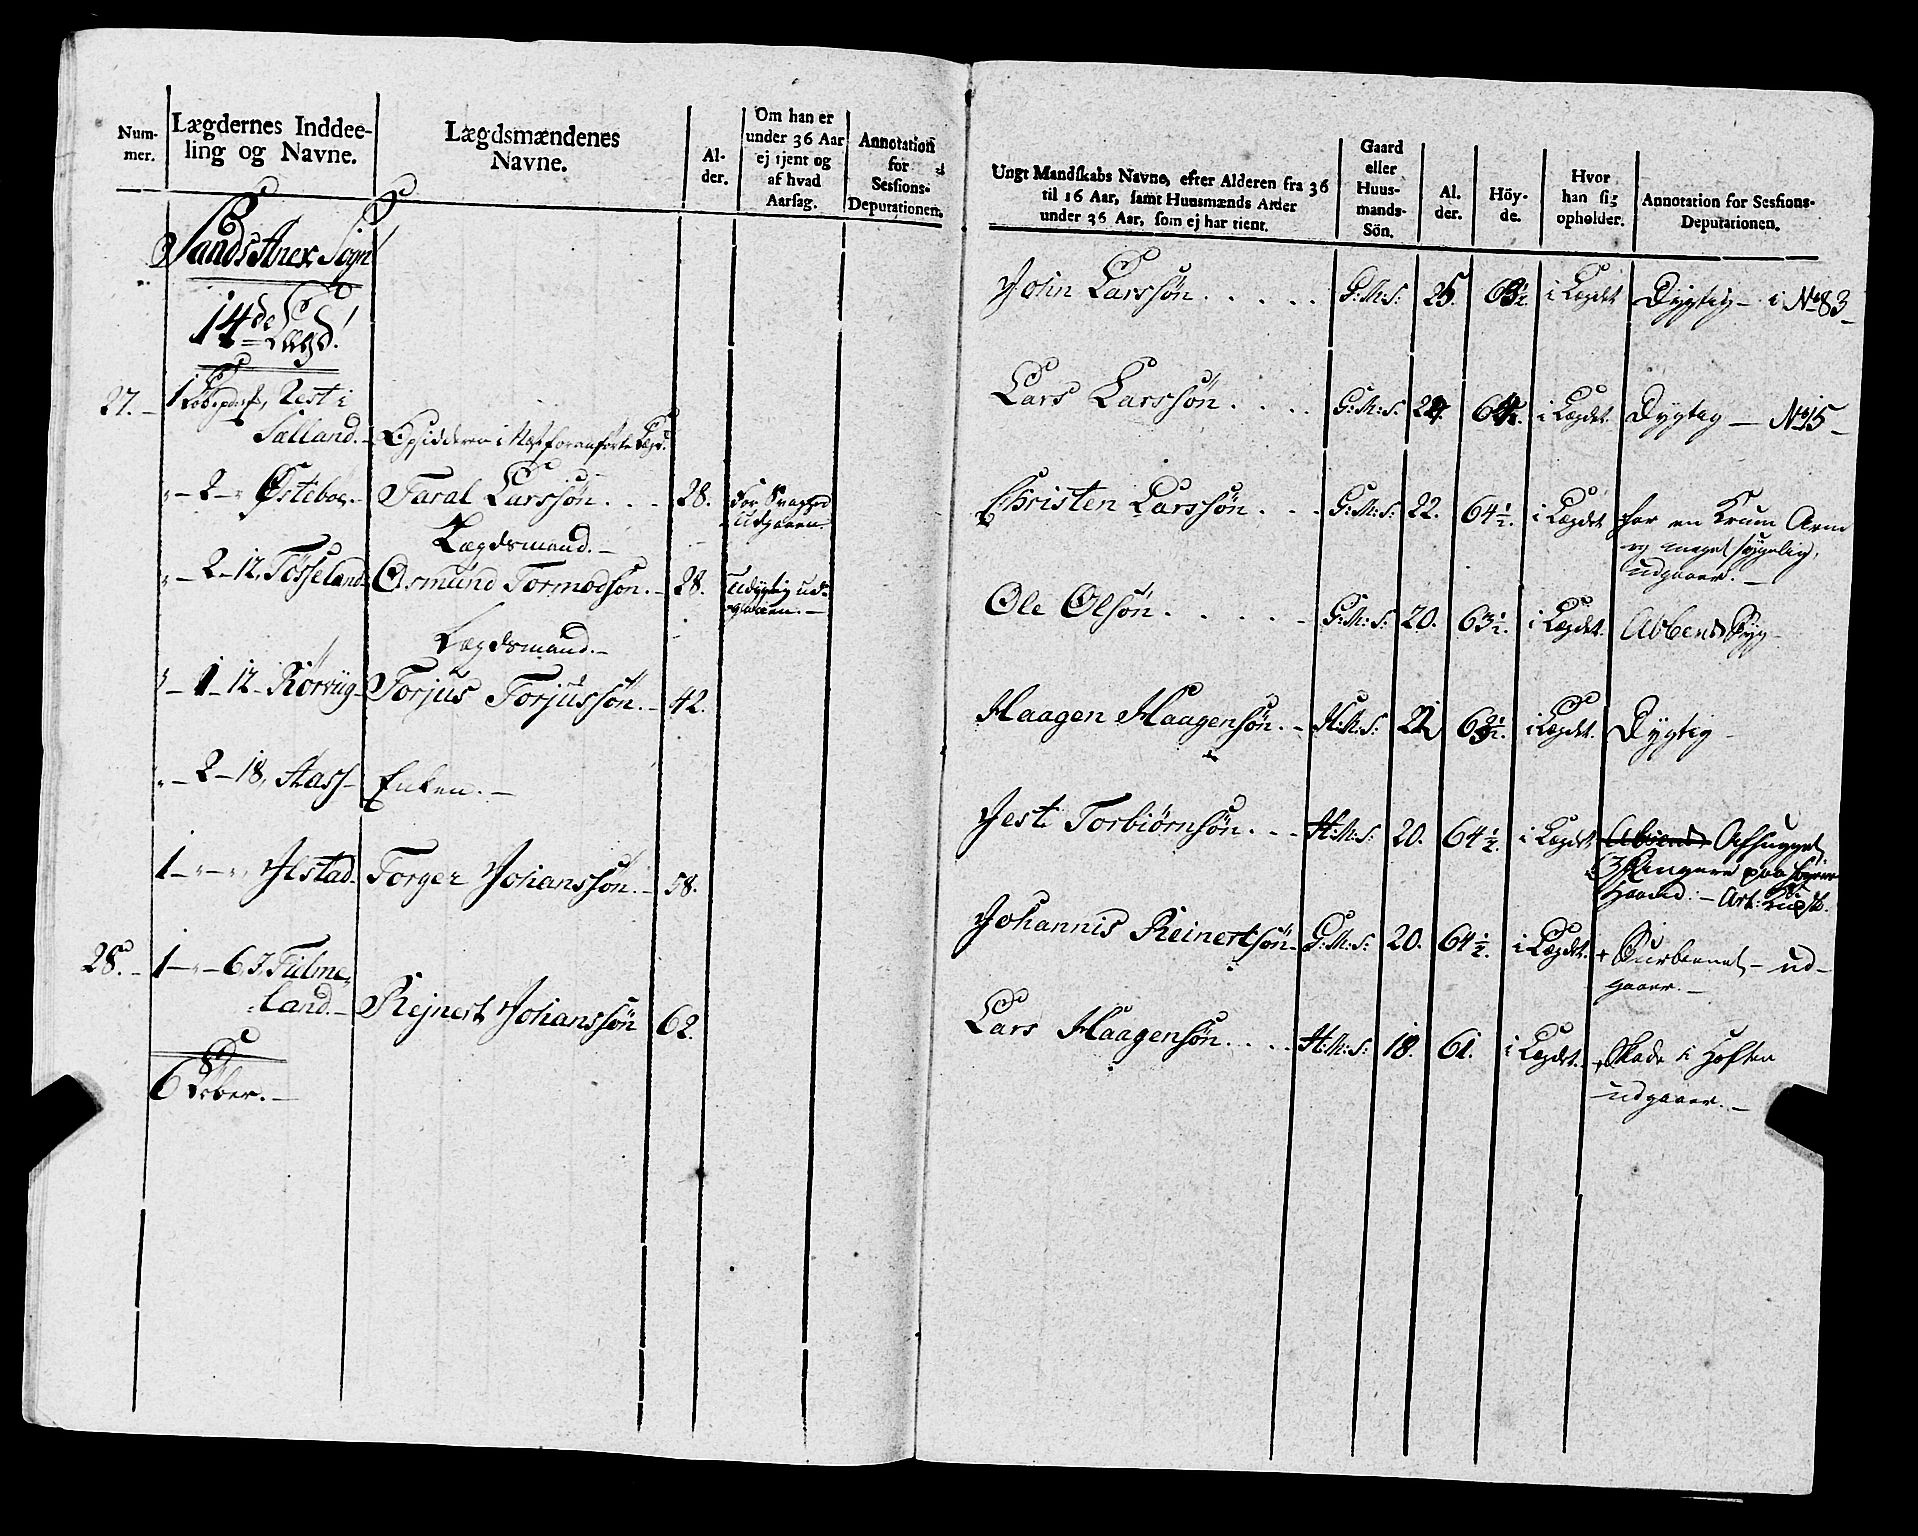 Num-
mer.
Lægdernes Inddee-
ling og Navne.
Lægdsmændenes
Navne.
Al-
der.
Om han er
under 36 Aar
ej tjent og
af hvad
Aarsag.
Annotation
for
Sessions-
Deputationen.
Sands Anex Sogn
14de Lægd.
27. 1 Rest i
Sælland. -
- 2 - Østeboe. - Taral Larssøn . . . 28. for Svaghed
udgaaen.
Lægdsmand. -
- 2 - 12, Tosseland Osmund Tormodsøn. - 28. Udygtig ud-
gaaen. -
Lægdsmand. -
- 1 - 12 - Rørviig - Torjus Torjussøn. - 42.
- 2 - 18, Aass - Enken. -
1 - " - " Ilstad - Torger Johanssøn. - 58.
28. - 1 - " - 6, J. Fulme-
land. - Rejnert Johanssøn 62.
6 Løber. -
Ungt Mandskabs Navne, efter Alderen fra 36
til 16 Aar, samt Huusmænds Alder
under 36 Aar, som ej har tient.
Gaard
eller
Huus-
mands-
Sön.
Al.
der.
Höy-
de.
Hvor
han sig
opholder.
Annotation for Sessions-
Deputationen.
John Larssøn . . . . . G:M:S: 25. 63½ i Lægdet Dygtig - i No 83 -
Lars Larssøn . . . . G:M:S: 24. 64½. i Lægdet. Dygtig - No 15 -
Christen Larssøn . . . G:M:S: 22. 64½. i Lægdet for en Krum Arm
og meget sygelig,
udgaaer. -
Ole Olsøn . . . . . - G:M:S: 20. 63½. i Lægdet. Absend Syg -
Haagen Haagensøn. - H:M:S: 22 63½. i Lægdet. Dygtig -
Jest. Torbiørnsøn. . . - H:M:S: 20. 64½. i Lægdet Absend Afhugget
3 Fingere paa højere
Haand. -
Johannis Reinertsøn - G:M:S: 20. 64½. i Lægdet. + - ud-
gaaer. -
Lars Haagensøn. . . . H:M:S: 18. 61. i Lægdet. Skade i Hoften
udgaaer. -